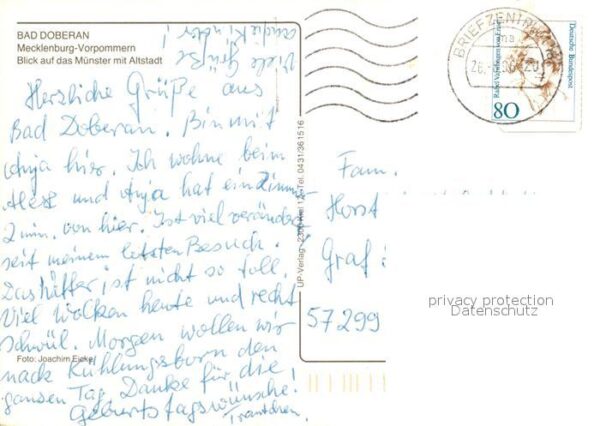 BAD DOBERAN
Mecklenburg-Vorpommern
Blick auf das Münster mit Altstadt
Viele Grüße
Kinder!
Herzliche Grüße aus
Bad Doberan. Bin mit
Anja hier. Ich wohne beim
und Anja hat ein Zimmer
2 min. von hier. Ist viel verändert
seit meinem letzten Besuch.
Das Wetter ist nicht so toll.
Viel Wolken heute und recht
schwül. Morgen wollen wir
nach Kühlungsborn den
ganzen Tag. Danke für die
Geburtstagswünsche!
Trautchen.
Foto: Joachim Eicke
UP-Verlag · 2300 Kiel 17 · Tel. 0431/361516
BRIEFZENTRUM
Deutsche Bundespost
80
Fam.
Horst
Graf
57299
privacy protection
Datenschutz